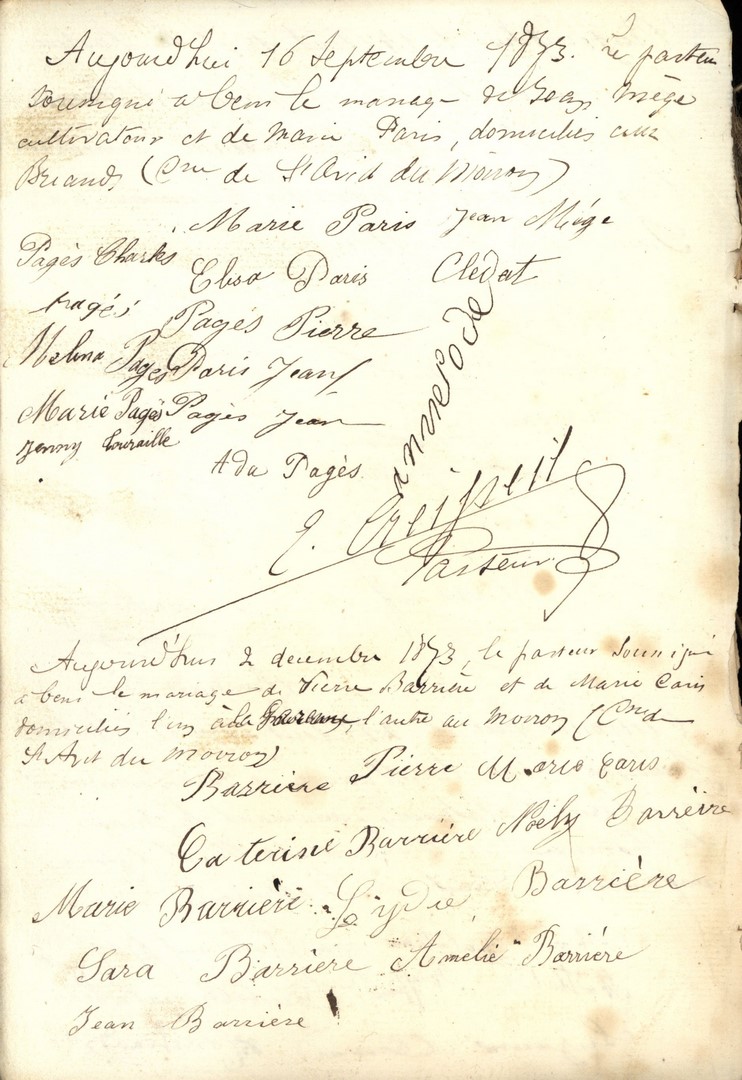 Aujourd'hui 16 Septembre 1873. Le pasteur
soussigné a beni le mariage de Jean Mège
cultivateur et de Marie Paris, domiciliés aux
Briands (Cne de St Avid du Moiron)
Marie Paris Jean Mège
Pagès Charles
Elisa Paris Clédat
Pagés
Pagés Pierre
Melina Pages Paris Jean
Marie Pagès Pagès Jean
Jenny Touraille
Ada Pagès
E. Creisseil
Pasteur
Aujourd'hui 2 decembre 1873, le pasteur soussigné
a beni le mariage de Pierre Barrière et de Marie Paris
domiciliés l'un à la l'autre au Moiron (Cne de
St Avit du Moiron)
Barrière Pierre Marie Paris
Caterine Barrière Noëly Barreire
Marie Barrière Lydie Barrière
Sara Barrière Amelie Barrière
Jean Barrière